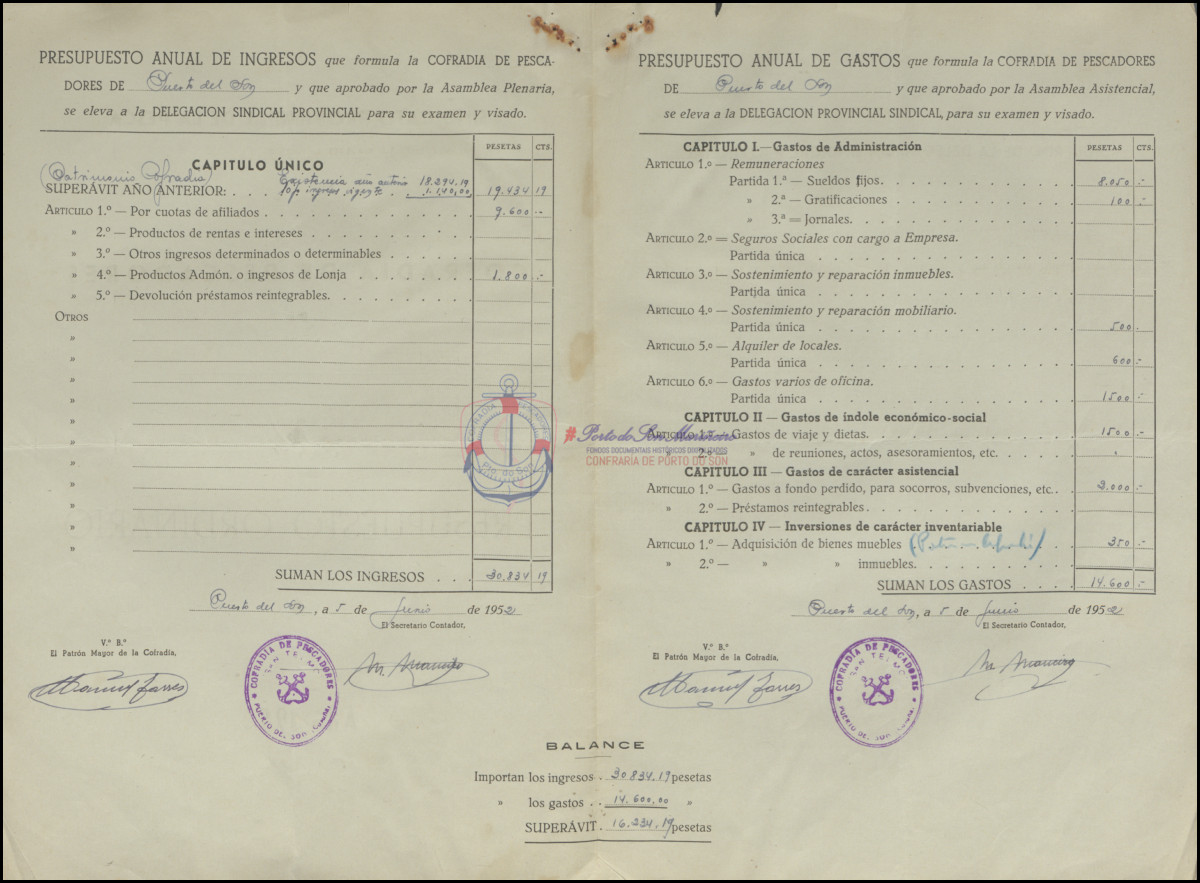 PRESUPUESTO ANUAL DE INGRESOS que formula la COFRADIA DE PESCA-
DORES DE Puerto del Son y que aprobado por la Asamblea Plenaria,
se eleva a la DELEGACION SINDICAL PROVINCIAL para su examen y visado.
PESETAS CTS.
CAPITULO ÚNICO
(Patrimonio Cofradia)
Existencia año anterior 18.294,19
SUPERÁVIT AÑO ANTERIOR: . . . 1.140,00 19.434 19
ARTICULO 1.º — Por cuotas de afiliados 9.600 --
» 2.º — Productos de rentas e intereses
» 3.º — Otros ingresos determinados o determinables
» 4.º — Productos Admón. o ingresos de Lonja 1.800 -
» 5.º — Devolución préstamos reintegrables.
OTROS
»
»
»
»
»
»
»
»
»
»
»
SUMAN LOS INGRESOS . . . 30.834 19
Puerto del Son, a 5 de Junio de 1952
El Secretario Contador,
V.º B.º
El Patrón Mayor de la Cofradía,
Manuel Torres
COFRADÍA DE PESCADORES
SAN TELMO
PUERTO DEL SON
PRESUPUESTO ANUAL DE GASTOS que formula la COFRADIA DE PESCADORES
DE Puerto del Son y que aprobado por la Asamblea Asistencial,
se eleva a la DELEGACION SINDICAL PROVINCIAL, para su examen y visado.
PESETAS CTS.
CAPITULO I.—Gastos de Administración
ARTICULO 1.º — Remuneraciones
Partida 1.ª — Sueldos fijos. 8.050 -
» 2.ª — Gratificaciones 100 -
» 3.ª = Jornales.
ARTICULO 2.º = Seguros Sociales con cargo a Empresa.
Partida única
ARTICULO 3.º — Sostenimiento y reparación inmuebles.
Partida única
ARTICULO 4.º — Sostenimiento y reparación mobiliario.
Partida única 500 -
ARTICULO 5.º — Alquiler de locales.
Partida única 600 -
ARTICULO 6.º — Gastos varios de oficina.
Partida única 1500 -
CAPITULO II — Gastos de índole económico-social
ARTICULO 1.º — Gastos de viaje y dietas. 1500 -
» 2.º » de reuniones, actos, asesoramientos, etc.
CAPITULO III — Gastos de carácter asistencial
ARTICULO 1.º — Gastos a fondo perdido, para socorros, subvenciones, etc. . 2.000 -
» 2.º — Préstamos reintegrables
CAPITULO IV — Inversiones de carácter inventariable
ARTICULO 1.º — Adquisición de bienes muebles 350 -
» 2.º — » » inmuebles.
SUMAN LOS GASTOS . . . . 14.600 -
Puerto del Son, a 5 de Junio de 1952
El Secretario Contador,
V.º B.º
El Patrón Mayor de la Cofradía,
Manuel Torres
COFRADÍA DE PESCADORES
SAN TELMO
PUERTO DEL SON
COFRADÍA PESCADORES
Pto. do Son
#Porto do Son Mariñeiro
FONDOS DOCUMENTAIS HISTÓRICOS DIXITALIZADOS
CONFRARÍA DE PORTO DO SON
BALANCE
Importan los ingresos . 30.834,19 pesetas
» los gastos . . 14.600,00 »
SUPERÁVIT . 16.234,19 pesetas